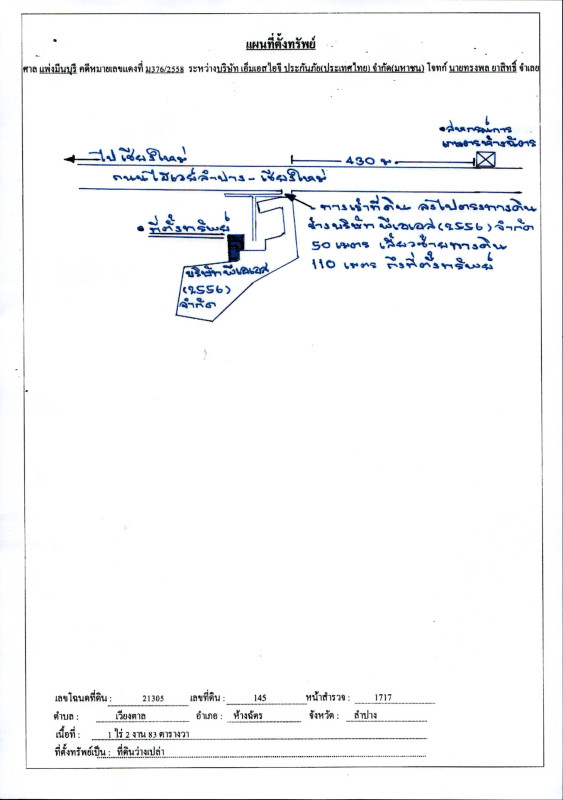 แผนที่ตั้งทรัพย์
ศาล แพ่งมีนบุรี คดีหมายเลขแดงที่ ม376/2558 ระหว่างบริษัท เอ็มเอสไอจี ประกันภัย(ประเทศไทย) จำกัด(มหาชน) โจทก์ นายทรงพล ยาสิทธิ์ จำเลย
สหกรณ์การ
เกษตรห้างฉัตร
ไปเชียงใหม่
430 ม
ถนนไฮเวย์ลำปาง - เชียงใหม่
ทางเข้าที่ดิน ลงไปตรงทางดิน
ข้างบริษัท พีเอเอส(2556) จำกัด
50 เมตร เลี้ยวซ้ายทางดิน
110 เมตร ถึงที่ตั้งทรัพย์
ที่ตั้งทรัพย์
บริษัทพีเอเอส
(2556)
จำกัด
เลขโฉนดที่ดิน : 21305 เลขที่ดิน : 145 หน้าสำรวจ : 1717
ตำบล : เวียงตาล อำเภอ : ห้างฉัตร จังหวัด : ลำปาง
เนื้อที่ : 1 ไร่ 2 งาน 83 ตารางวา
ที่ตั้งทรัพย์เป็น : ที่ดินว่างเปล่า